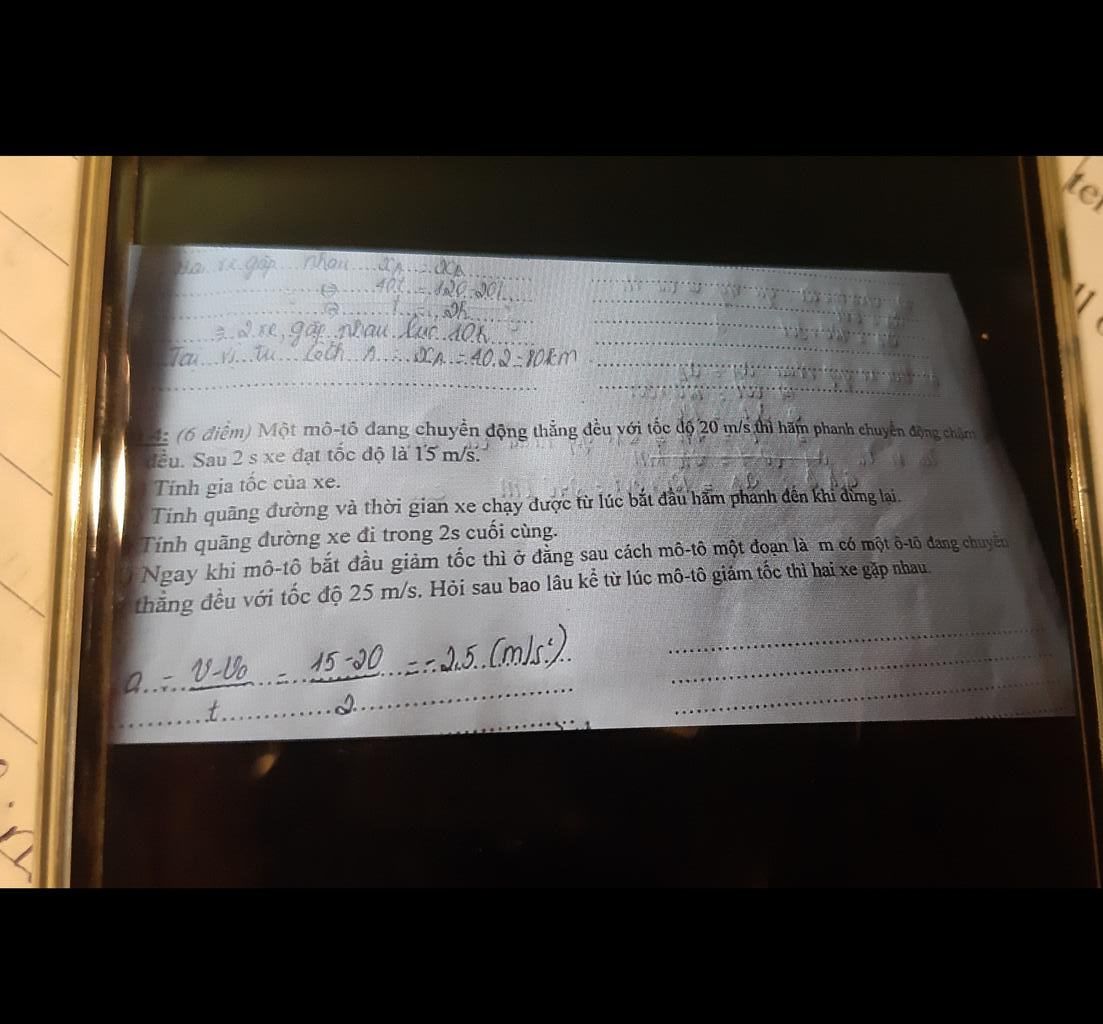 Hai xe gặp nhau xA = xA
⇔ 40t = 120-20t
⇒ t = 2h
⇒ 2 xe gặp nhau lúc 10h
Tại vị trí cách A = xA = 40.2 = 80km
4: (6 điểm) Một mô-tô đang chuyển động thẳng đều với tốc độ 20 m/s thì hãm phanh chuyển động chậm
đều. Sau 2 s xe đạt tốc độ là 15 m/s.
Tính gia tốc của xe.
Tính quãng đường và thời gian xe chạy được từ lúc bắt đầu hãm phanh đến khi dừng lại.
Tính quãng đường xe đi trong 2s cuối cùng.
Ngay khi mô-tô bắt đầu giảm tốc thì ở đằng sau cách mô-tô một đoạn là m có một ô-tô đang chuyển
thẳng đều với tốc độ 25 m/s. Hỏi sau bao lâu kể từ lúc mô-tô giảm tốc thì hai xe gặp nhau.
a = v-v₀ / t = 15-20 / 2 = -2.5 (m/s²)